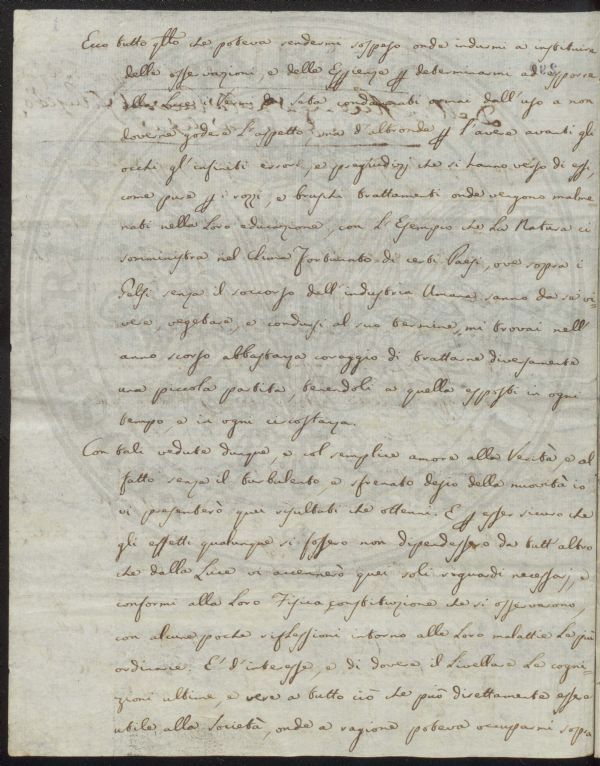 Ecco tutto q̃llo che poteva rendermi sospeso onde indurmi a instituire
delle osservazioni, e delle Esperienze p determinarmi ad esporre
alla Luce i Vermi da Seta condannati ormai dall'uso a non
doverne godere L'aspetto; ma d'altronde p l'avere avanti gli
occhi gl'infiniti errori, e pregiudizj che si hanno verso di essi,
come pure p i rozzi, e bruschi trattamenti onde vengono malme
nati nella Loro educazione, con L'Esempio che La Natura ci
somministra nel Clima Fortunato di certi Paesi, ove sopra i
Gelsi senza il soccorso dell'industria Umana sanno da se vi-
vere, vegetare, e condursi al suo termine, mi trovai nell'
anno scorso abbastanza coraggio di trattarne diversamente
una piccola partita, tenendoli a quella esposti in ogni
tempo, e in ogni circostanza.
Con tali vedute dunque, e col semplice amore alla Verità e al
fatto senza il turbulento, e sfrenato desio della nuovità io
vi presenterò quei risultati che ottenni. E p esser sicuro che
gli effetti qualunque si fossero non dipendessero da tutt'altro
che dalla Luce vi accennerò quei soli riguardi necessarj, e
conformi alla Loro Fisica constituzione che si osservarono,
con alcune poche riflessioni intorno alle Loro malattie Le più
ordinarie. E' d'interesse, e di dovere il Livellare Le cogni-
zioni ultime, e vere a tutto ciò che può direttamente essere
utile alla Società, onde a ragione poteva occuparmi sopra